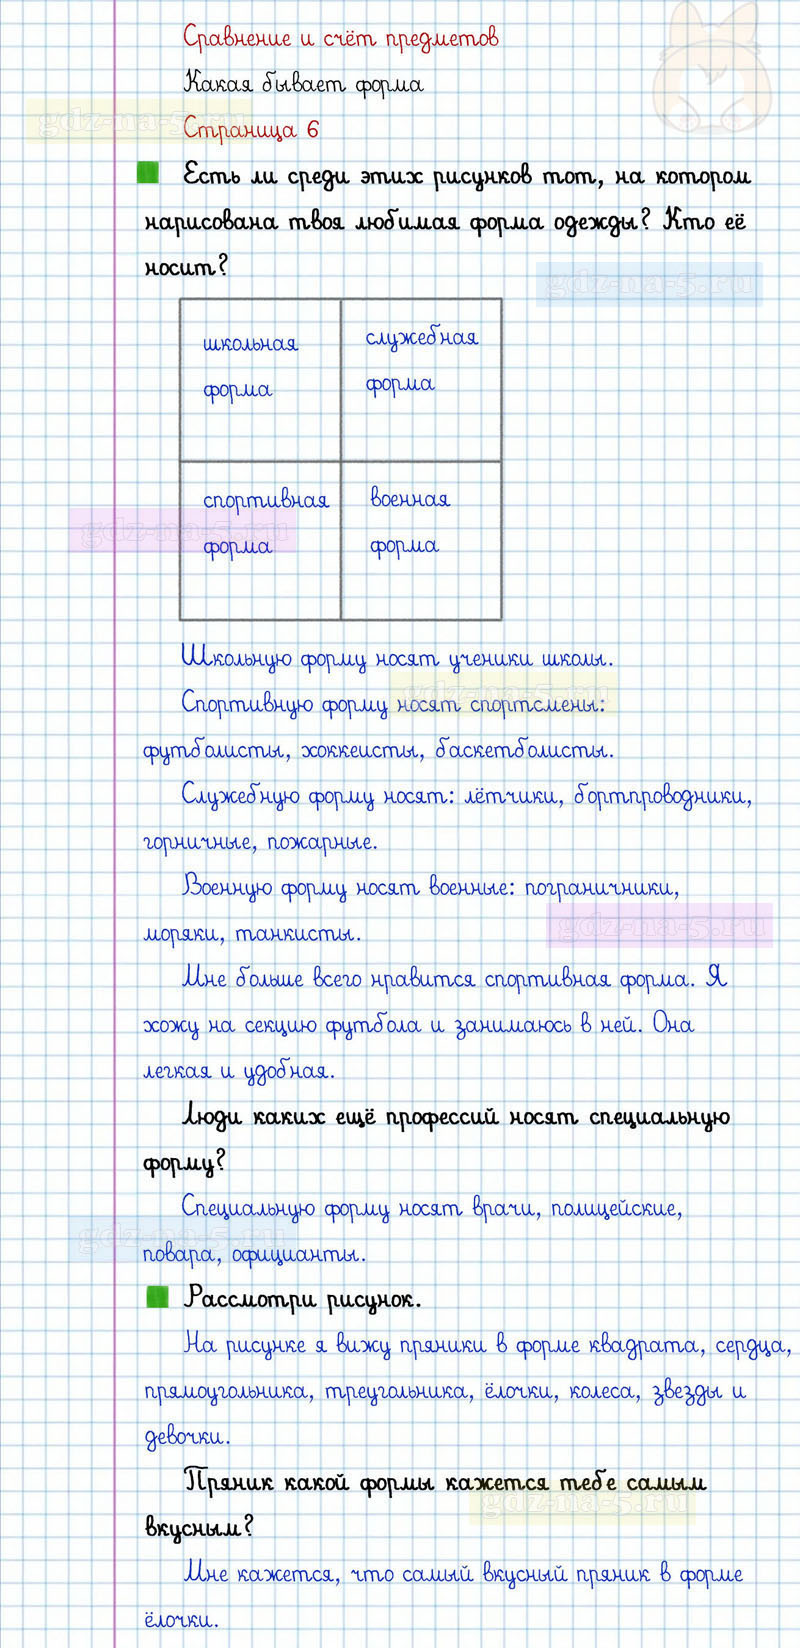 Сравнение и счёт предметов
Какая бывает форма
gdz-na-5.ru
Страница 6
Есть ли среди этих рисунков тот, на котором
нарисована твоя любимая форма одежды? Кто её
носит?
gdz-na-5.ru
школьная
форма
служебная
форма
спортивная
форма
военная
форма
gdz-na-5.ru
Школьную форму носят ученики школы.
gdz-na-5.ru
Спортивную форму носят спортсмены:
футболисты, хоккеисты, баскетболисты.
Служебную форму носят: лётчики, бортпроводники,
горничные, пожарные.
Военную форму носят военные: пограничники,
gdz-na-5.ru
моряки, танкисты.
Мне больше всего нравится спортивная форма. Я
хожу на секцию футбола и занимаюсь в ней. Она
легкая и удобная.
Люди каких ещё профессий носят специальную
форму?
Специальную форму носят врачи, полицейские,
gdz-na-5.ru
повара, официанты.
Рассмотри рисунок.
На рисунке я вижу пряники в форме квадрата, сердца,
прямоугольника, треугольника, ёлочки, колеса, звезды и
девочки.
Пряник какой формы кажется тебе самым
gdz-na-5.ru
вкусным?
Мне кажется, что самый вкусный пряник в форме
ёлочки.